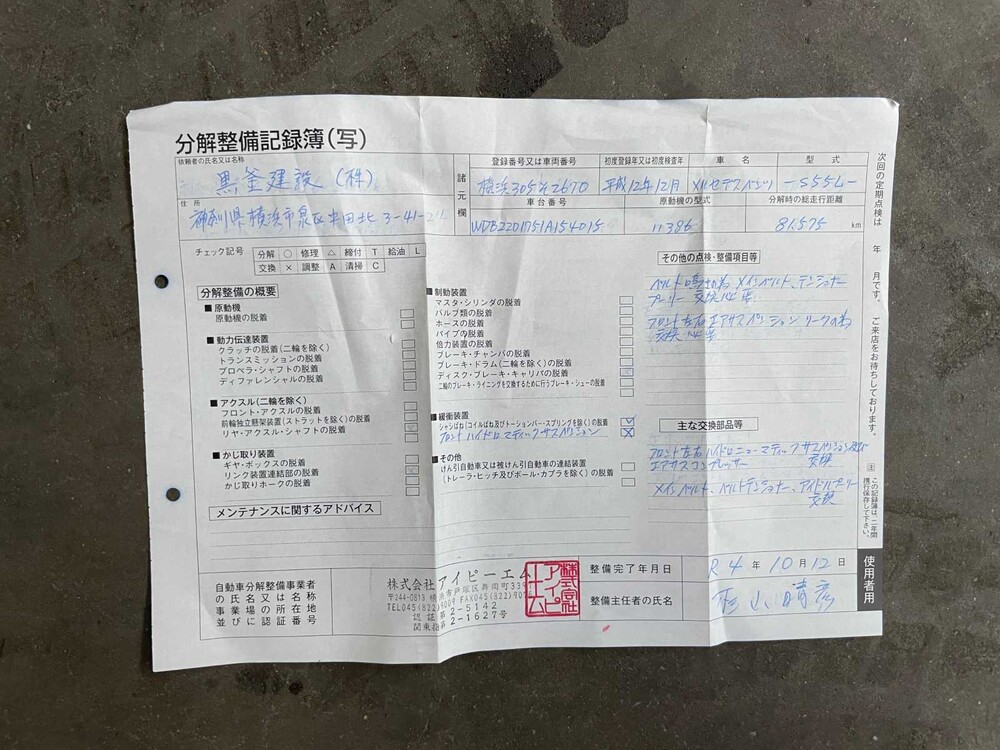 分解整備記録簿(写)
依頼者の氏名又は名称
黒釜建設(株)
住所
神奈川県横浜市泉区中田北3-41-
諸元欄
登録番号又は車両番号
初度登録年又は初度検査年
車名
型式
横浜305 2670
平成12年12月
メルセデスベンツ
-S55L-
車台番号
原動機の型式
分解時の総走行距離
WDB2201751A154015
11386
81,575 km
チェック記号
分解 ○ 修理 △ 締付 T 給油 L
交換 × 調整 A 清掃 C
分解整備の概要
■原動機
原動機の脱着
■動力伝達装置
クラッチの脱着(二輪を除く)
トランスミッションの脱着
プロペラ・シャフトの脱着
ディファレンシャルの脱着
■アクスル(二輪を除く)
フロント・アクスルの脱着
前輪独立懸架装置(ストラットを除く)の脱着
リヤ・アクスル・シャフトの脱着
■かじ取り装置
ギヤ・ボックスの脱着
リンク装置連結部の脱着
かじ取りホークの脱着
メンテナンスに関するアドバイス
■制動装置
マスタ・シリンダの脱着
バルブ類の脱着
ホースの脱着
パイプの脱着
倍力装置の脱着
ブレーキ・チャンバの脱着
ブレーキ・ドラム(二輪を除く)の脱着
ディスク・ブレーキ・キャリパの脱着
二輪のブレーキ・ライニングを交換するために行うブレーキ・シューの脱着
■緩衝装置
シャシばね(コイルばね及びトーションバー・スプリングを除く)の脱着
フロントハイドロマティックサスペンション
■その他
けん引自動車又は被けん引自動車の連結装置
(トレーラ・ヒッチ及びボール・カプラを除く)の脱着
その他の点検・整備項目等
ベルト鳴きの為 メインベルト、テンショナー
プーリー 交換
フロント左右エアサスペンション リークの為
交換
主な交換部品等
フロント左右ハイドロニューマティックサスペンション及び
エアサスコンプレッサー 交換
メインベルト、ベルトテンショナー、アイドルプーリー
交換
自動車分解整備事業者
の氏名又は名称
事業場の所在地
並びに認証番号
株式会社アイピーエム
〒244-0813
TEL045(822)9009 FAX045(822)
認証 第2-5142
関東指 第2-1627号
株式会社アイピーエム
整備完了年月日
R4年10月12日
整備主任者の氏名
杉山晴彦
次回の定期点検は 年 月です。ご来店をお待ちしております。
注 この記録簿は、二年間携行保存して下さい。
使用者用